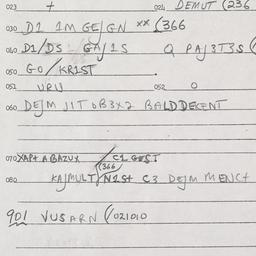 023 + 024 DEMUT (236
030 D1 1M GE/GN ** (366
040 D1/DS GA/1S Q PAJ3T3S (
050 GO/KRIST
051 URU 052 0
060 DEJM JIT 6B3X2 BALDDECENT
070 XAPT A BAZUX / C1 GEST
(366)
080 KAJMULT/N2St C3 DEJM MENCt
901 VUSARN (/021010